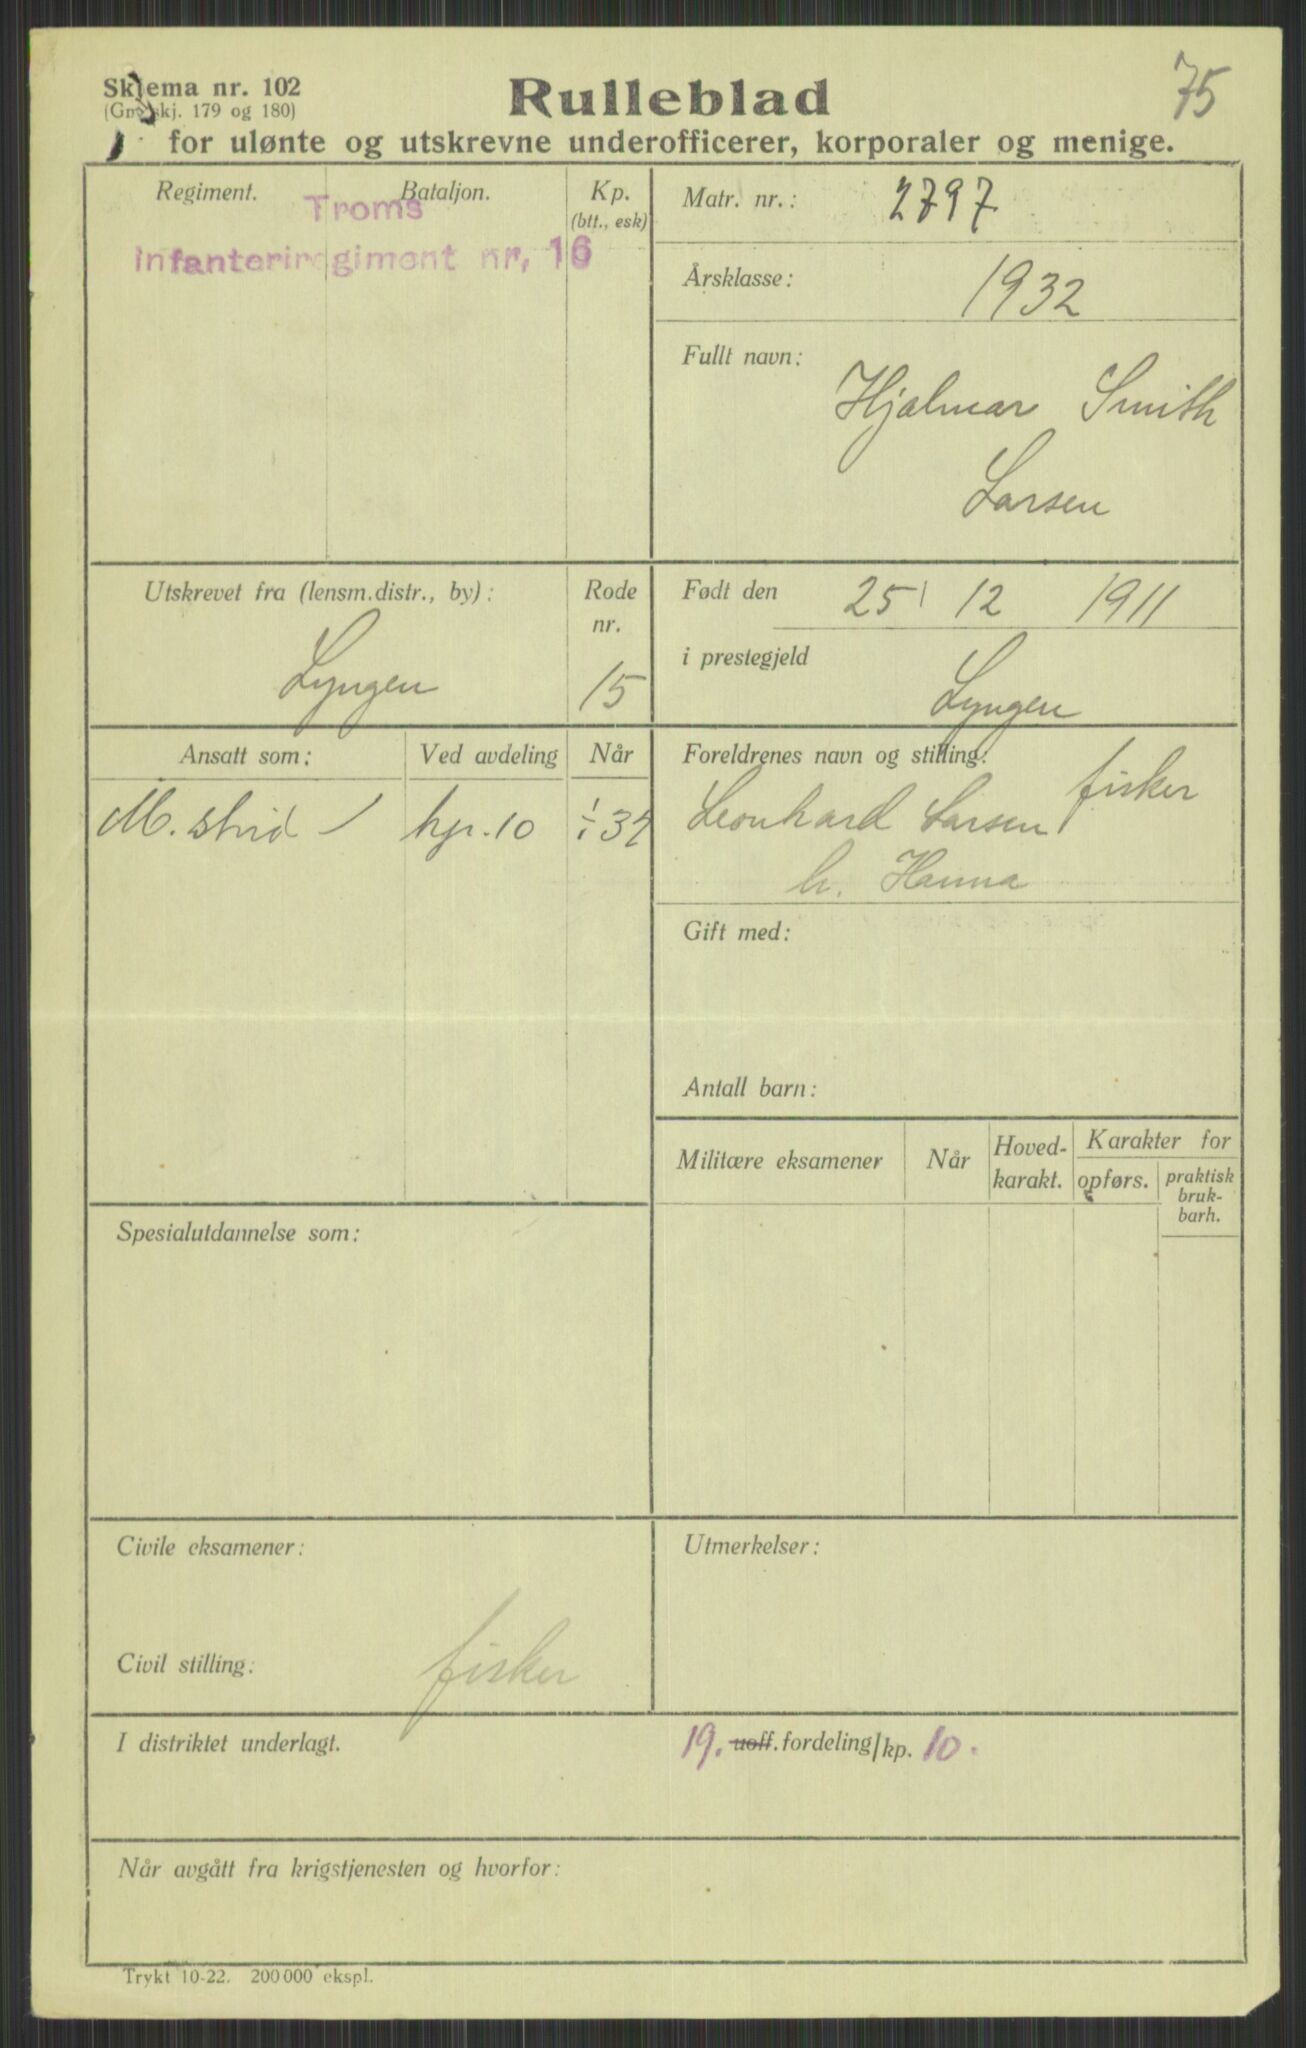 75
Skjema nr. 102
(Gml. skj. 179 og 180)
Rulleblad
for ulønte og utskrevne underofficerer, korporaler og menige.
Regiment.
Bataljon.
Kp.
(btt., esk)
Troms
infanteriregiment nr. 16
Matr. nr.: 2797
Årsklasse: 1932
Fullt navn:
Hjalmar Smith
Larsen
Utskrevet fra (lensm.distr., by):
Lyngen
Rode
nr.
15
Født den 25/ 12 1911
i prestegjeld
Lyngen
Ansatt som:
Ved avdeling
Når
M. strid /
kp. 10
1/1 32
Foreldrenes navn og stilling:
Leonhard Larsen fisker
h. Hanna
Gift med:
Antall barn:
Militære eksamener
Når
Hoved-
karakt.
Karakter for
opførs.
praktisk
bruk-
barh.
Spesialutdannelse som:
Civile eksamener:
Civil stilling: fisker
Utmerkelser:
I distriktet underlagt. 19. uoff. fordeling/kp. 10.
Når avgått fra krigstjenesten og hvorfor:
Trykt 10-22. 200 000 ekspl.